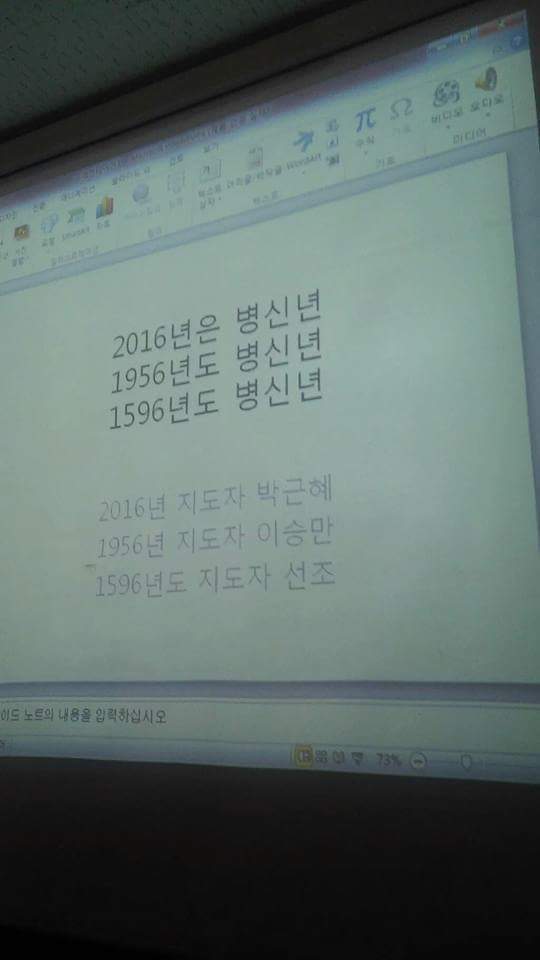 디자인 전환 애니메이션 슬라이드 쇼 검토 보기
도형 SmartArt 차트 텍스트 상자 머리글/바닥글 WordArt 수식 기호 비디오 오디오
텍스트 기호 미디어
2016년은 병신년
1956년도 병신년
1596년도 병신년
2016년 지도자 박근혜
1956년 지도자 이승만
1596년도 지도자 선조
이드 노트의 내용을 입력하십시오
73%